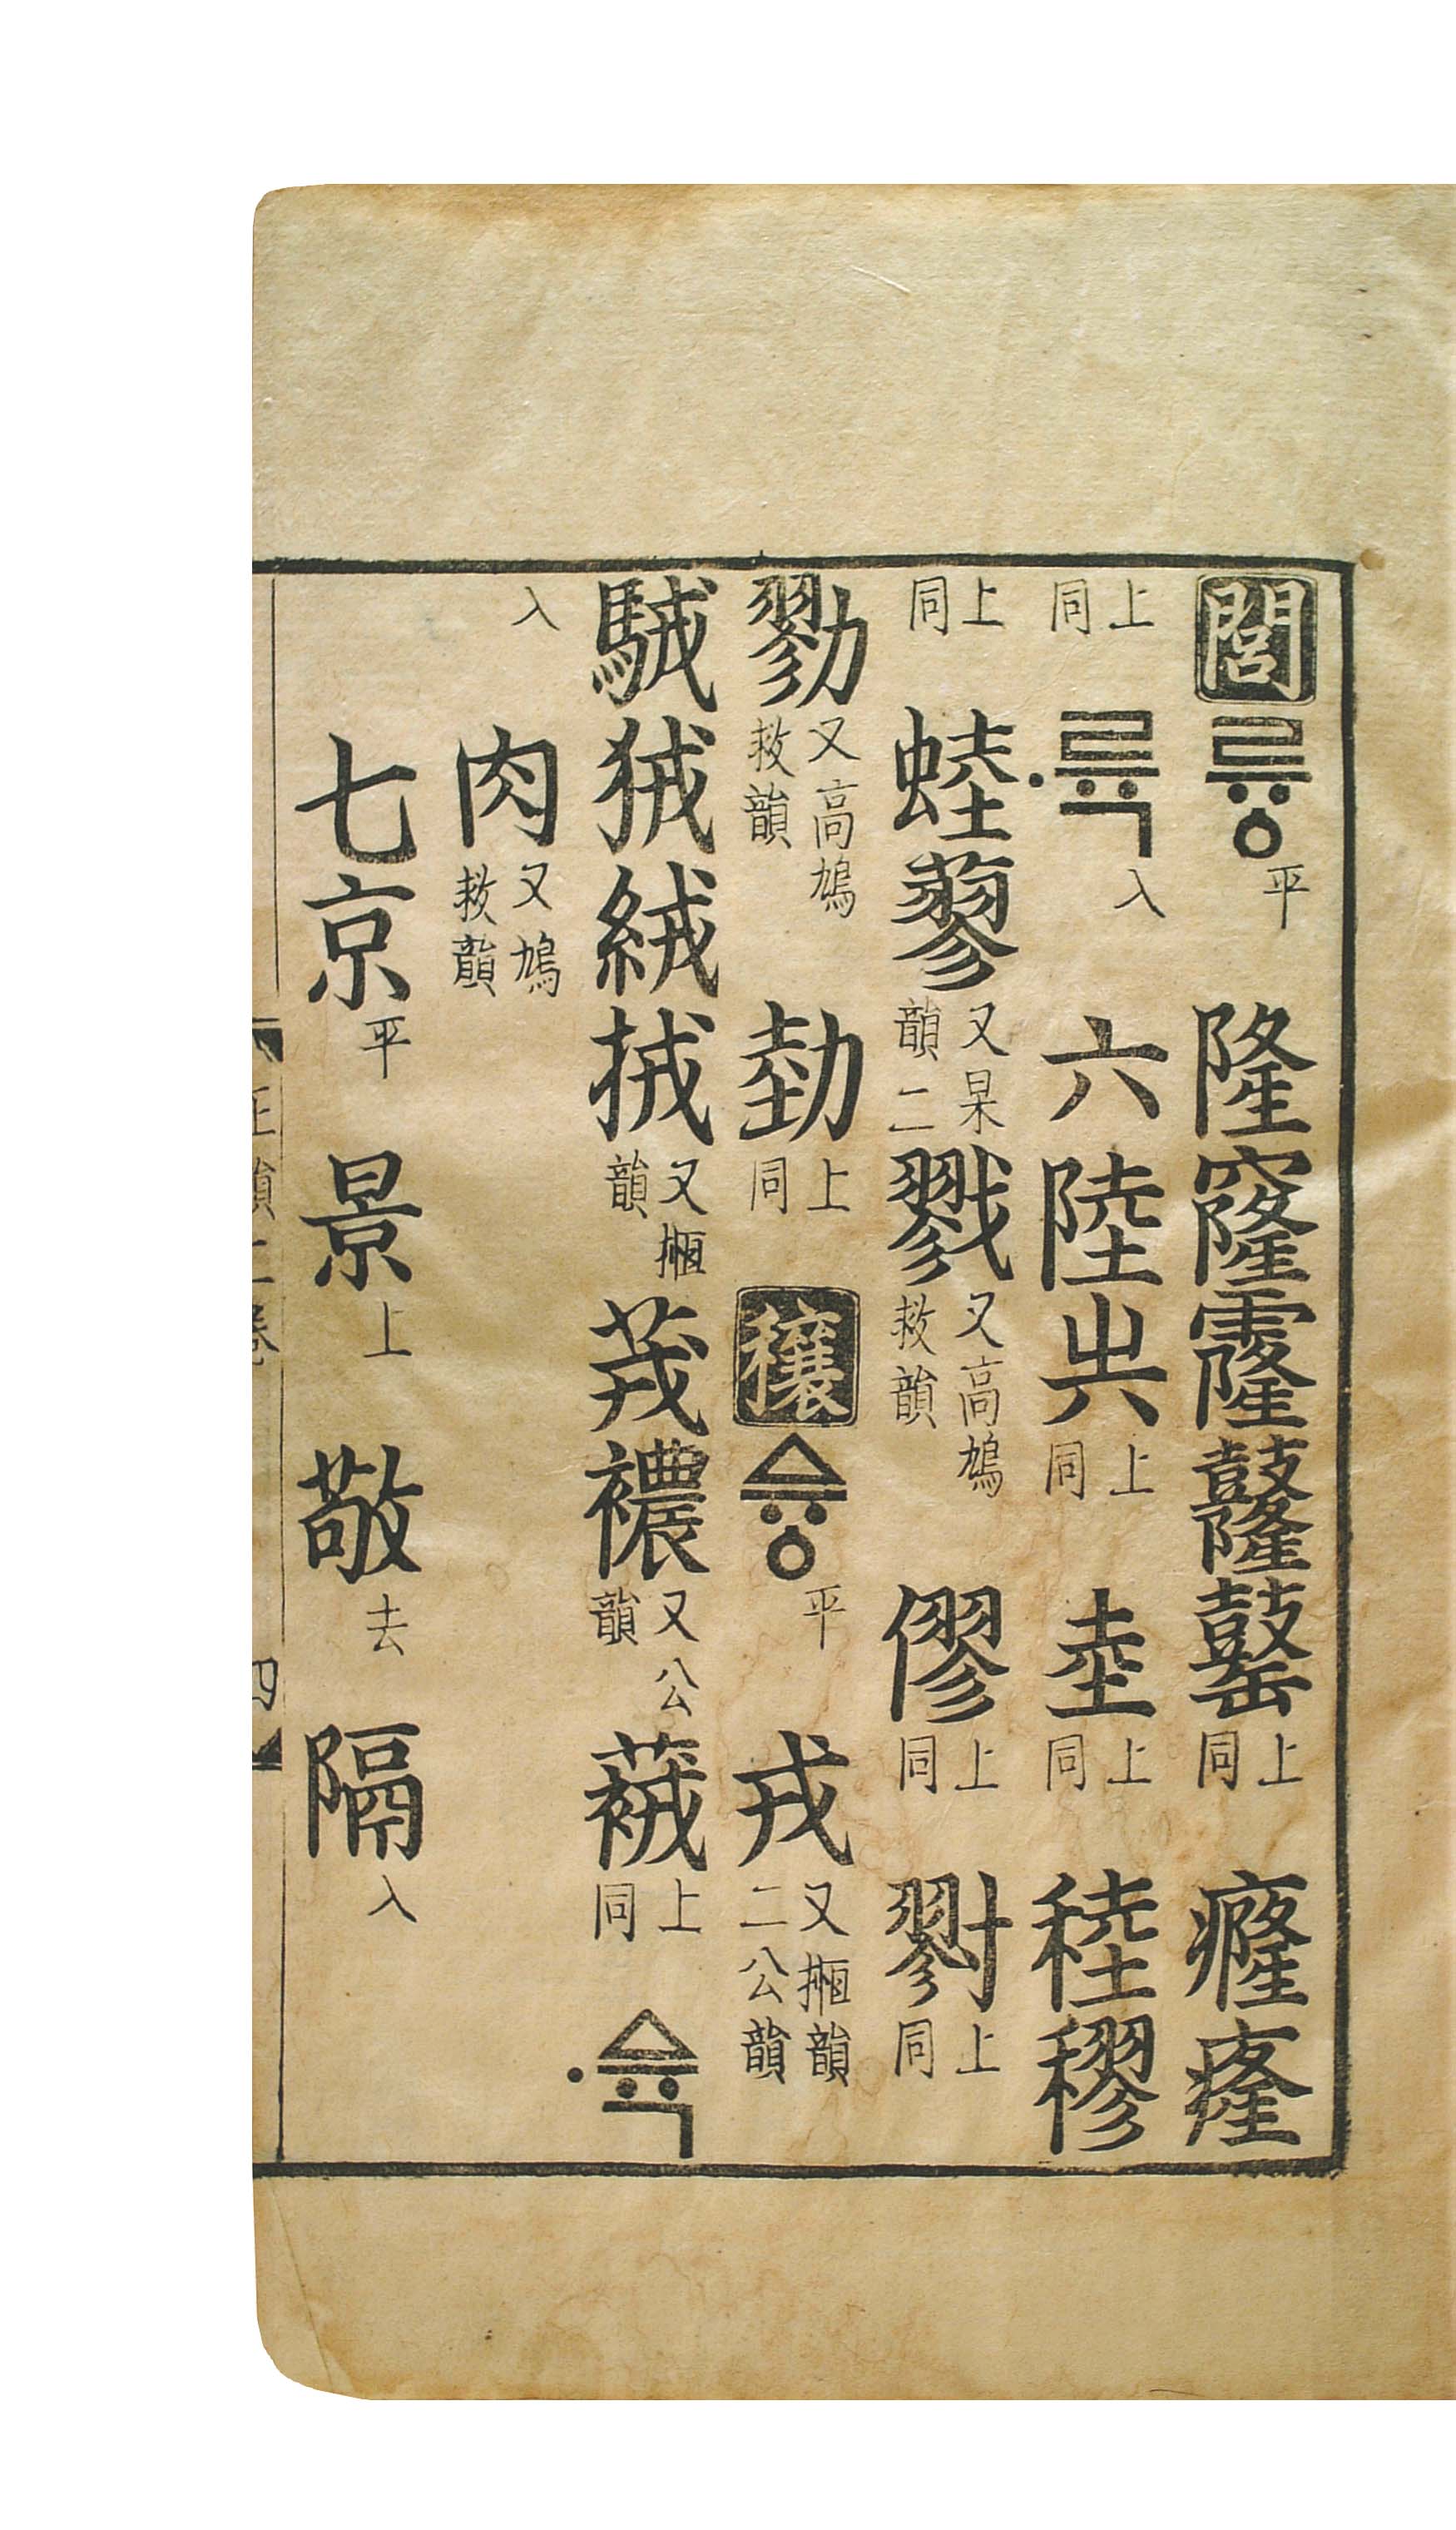 閭 륭 平 隆窿霳 上同 癃
上同 ·륙 入 六陸 上同 坴 上同 稑穋
上同 蓼 又杲韻二 戮 又高鳩救韻 僇 上同 上同
勠 又高鳩救韻 上同 穰 ᅀᅲᇰ 平 戎 又韻二公韻
駥狨絨 又韻 茙襛 又公韻 上同 ·ᅀᅲᆨ
入 肉 又鳩救韻
七京 平 景 上 敬 去 隔 入
正韻二卷 四